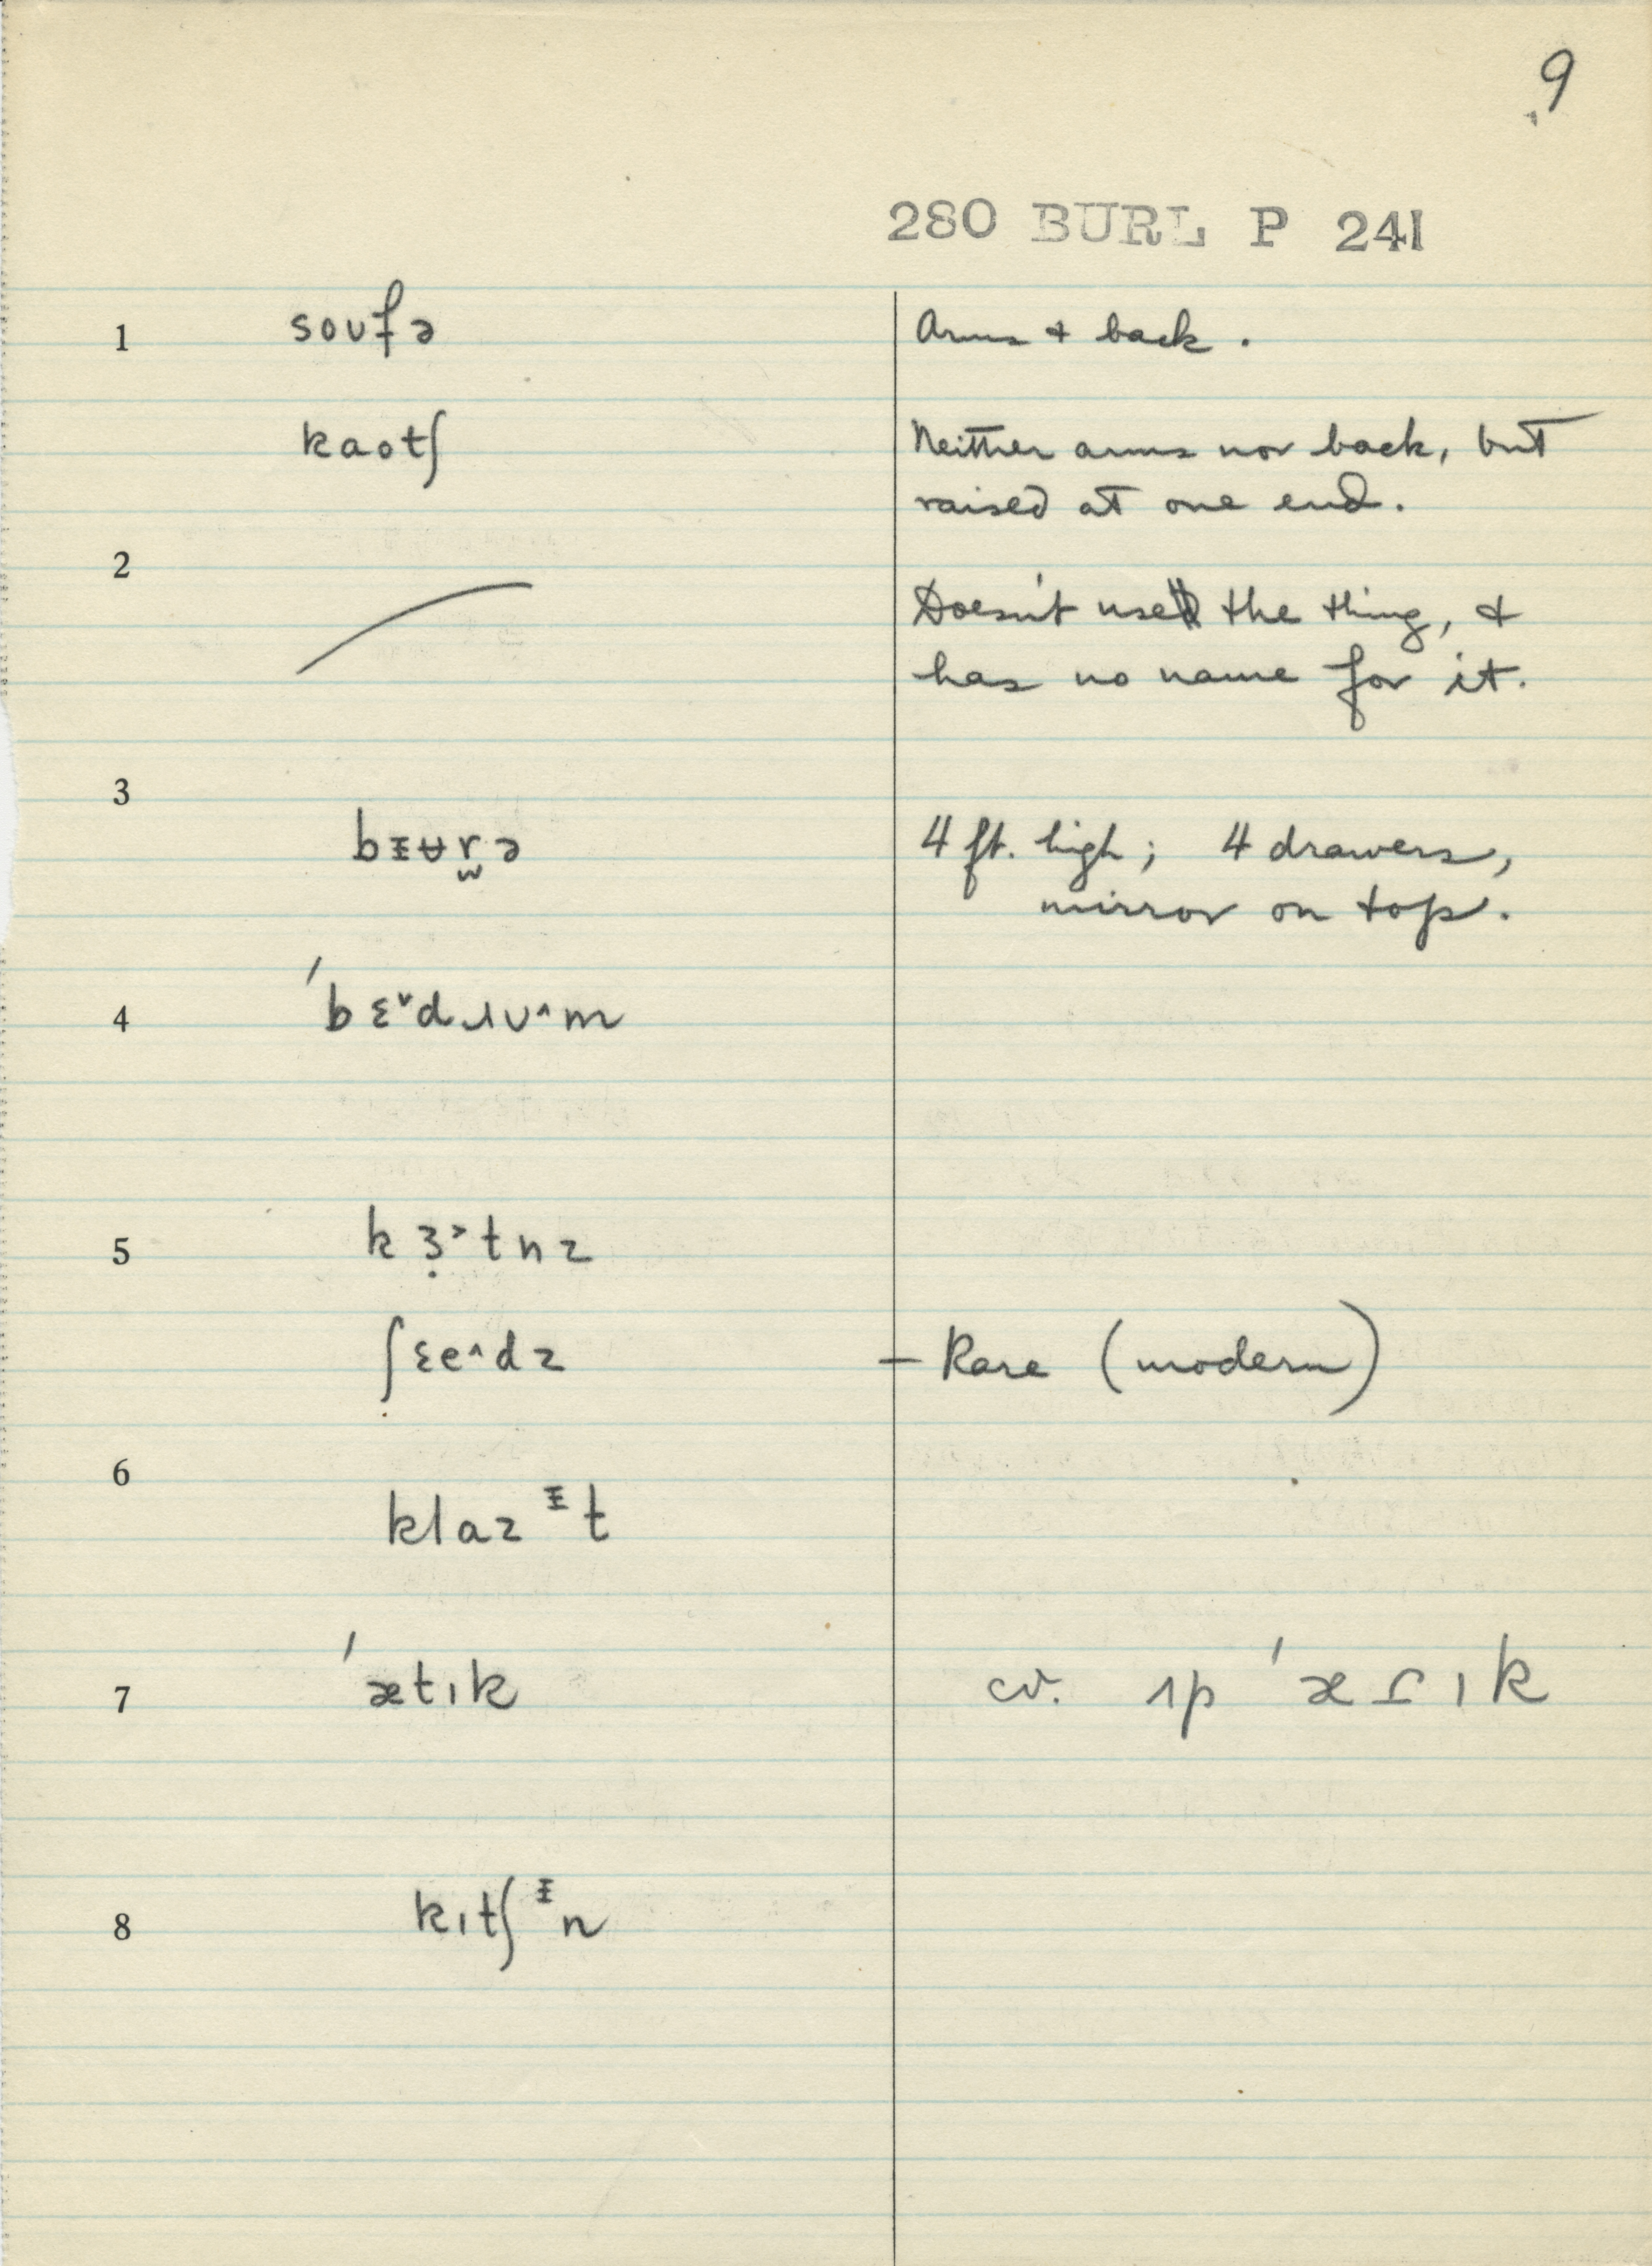 9
280 BURL P 241
1 soʊfə Arms + back.
kaotʃ Neither arms nor back, but
raised at one end.
2 Doesn't use the thing, +
has no name for it.
3
bᵻʉr̫ə 4 ft. high; 4 drawers,
mirror on top.
4 ˈbɛ˅dɹʊ˄m
5 kɜ̣˃tnz
ʃɛe˄dz – Rare (modern)
6
klazᵻt
7 ˈætɪk cv. ɪp ˈæɾɪk
8 kɪtʃᵻn